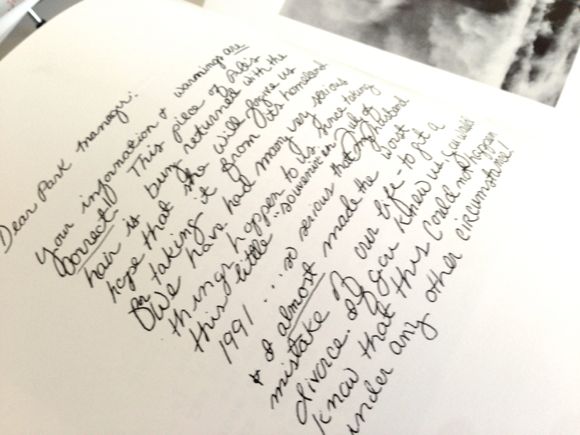 Dear Park Manager:
Your information & warnings are
correct!! This piece of Pele's
hair is being returned with the
hope that she will forgive us
for taking it from its homeland
We have had many very serious
things happen to us since taking
this little "souvenir" of
1991 ... so serious that my husband
& I almost made the worst
mistake of our life - to get a
divorce. If you knew us you would
know that this could not happen
under any other circumstance!